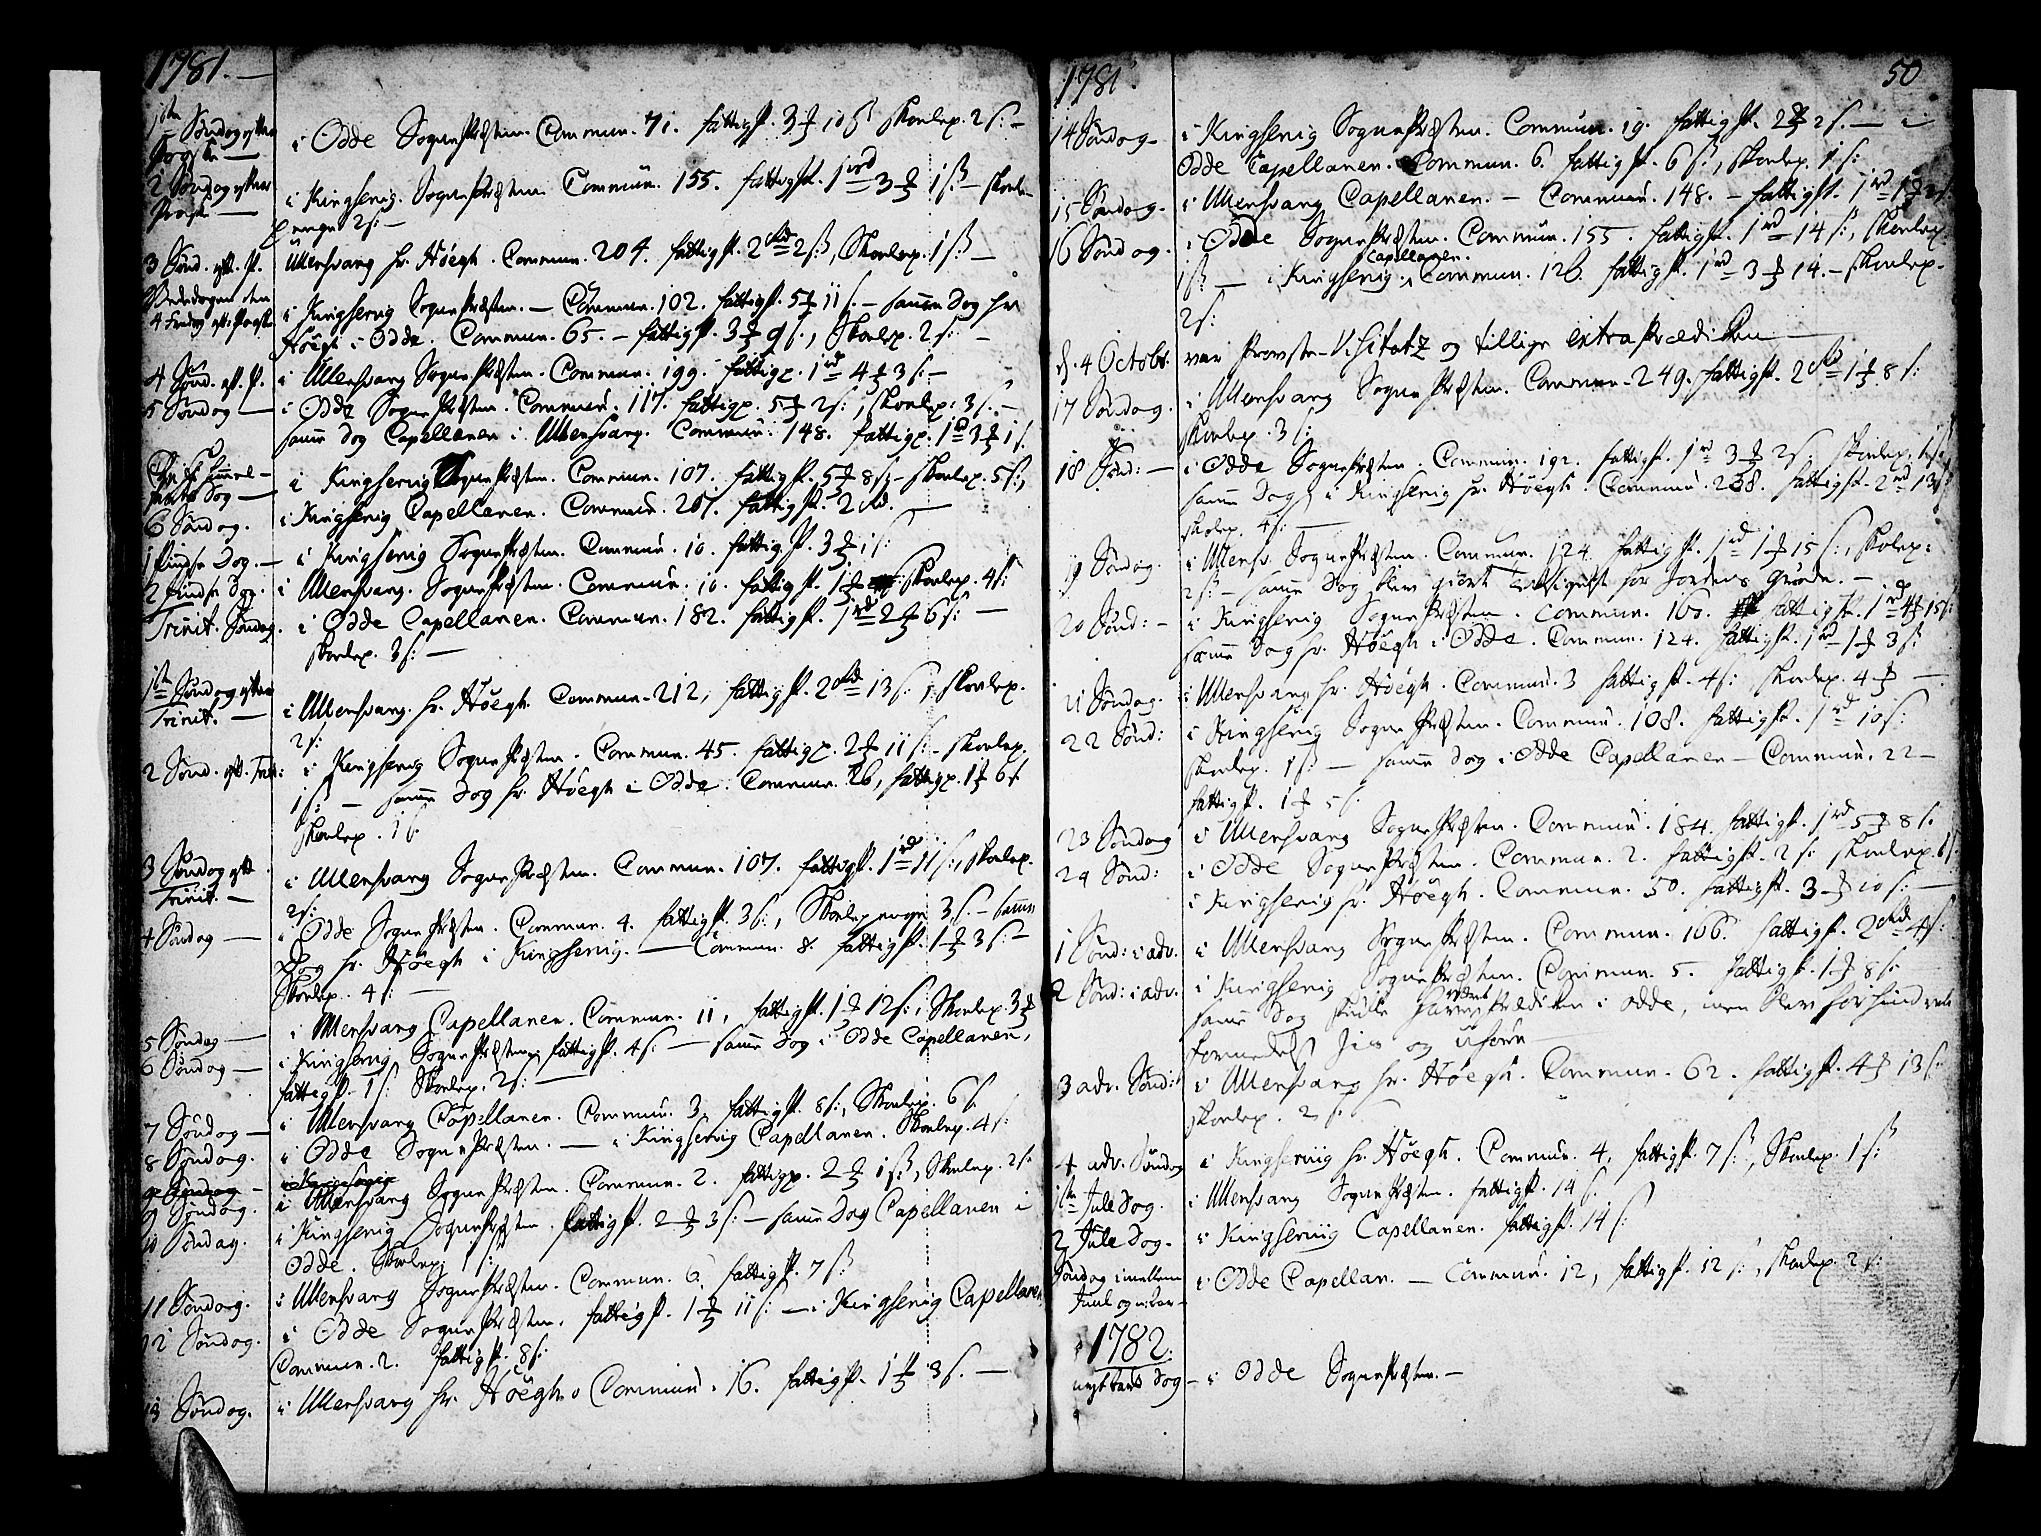 1781.
1ste Søndag efter Paaske — i Odde SognePræsten. Commun. 71. fattigp. 3 ℔ 10 ß Skolep. 2 ß: —
2 Søndag efter Paaske — i Kingservig. SognePræsten. Commun. 155. fattigp. 1 rd 3 ℔ 1 ß: — Skole-
penge 2 ß: —
3 Sønd. eft. P. Ullensvang hr. Höegh. Commun. 204. fattigp. 2 rd 2 ß, Skolep. 1 ß —
Bededagen den 4 Fredag eft. Paaske i Kingservig SognePræsten. — Commun. 102. fattigp. 5 ℔ 11 ß. — samme Dag hr
Höegh i Odde. Commun. 65. — fattigp. 3 ℔ 9 ß, Skolep. 2 ß: —
4 Sønd. eft. P. i Ullensvang SognePræsten. Commun. 199. fattigp. 1 rd 4 ℔ 3 ß. —
5 Søndag — i Odde SognePræsten. Commun. 117. fattigp. 5 ℔ 2 ß:, Skolep: 3 ß. —
samme Dag Capellanen i Ullensvang. Commun: 148. fattigp: 1 rd 3 ℔ 1 ß.
Christi Himmel-farts Dag — i Kingservig SognePræsten. Commun. 107. fattigp. 5 ℔ 8 ß: — Skolep. 5 ß:,
6 Søndag. i Kingservig Capellanen. Commun. 207. fattigp. 2 rd. —
1 Pindse Dag. — i Kingservig SognePræsten. Commun. 10. fattigp. 3 ℔ 1 ß:
2 Pindse Dag. i Ullensvang. SognePræsten. Commun. 10. fattigp. 1 ℔ Skolep. 4 ß:
Trinit. Søndag. i Odde Capellanen. Commun. 182. fattigp. 1 rd 2 ℔ 6 ß: —
Skolep. 3 ß: —
1ste Søndag efter Trinit. — i Ullensvang. hr. Höegh. Commun. 212, fattigp. 2 rd 13 ß:, Skolep.
2 ß:
2 Sønd. eft. Trin: i Kingservig SognePræsten. Commun. 45. fattigp. 2 ℔ 11 ß. — Skolep.
1 ß: — samme Dag hr. Höegh i Odde. Commun. 26, fattigp. 1 ℔ 6 ß
Skolep. 1 ß
3 Søndag eft. Trinit. — i Ullensvang SognePræsten. Commun. 107. fattigp. 1 rd 11 ß:, Skolep.
2 ß:
4 Søndag — i Odde SognePræsten. Commun. 4. fattigp. 3 ß:, Skolepenge 3 ß. — samme
Dag hr. Höegh i Kingservig. — Commun. 8. fattigp. 1 ℔ 3 ß: —
Skolep. 4 ß: —
5 Søndag — i Ullensvang Capellanen. Commun. 11, fattigp. 1 ℔ 12 ß:, Skolep. 3 ℔
6 Søndag — i Kingservig SognePræsten, fattigp. 4 ß: — samme Dag i Odde Capellanen,
fattigp. 1 ß: Skolep. 2 ß: —
7 Søndag — i Ullensvang Capellanen. Commun. 3. fattigp. 8 ß:, Skolep. 6 ß
8 Søndag. i Odde SognePræsten. — i Kingservig Capellanen. Skolep. 4 ß:
9 Søndag —
9 Søndag. i Ullensvang SognePræsten. Commun. 2. fattigp. 2 ℔ 1 ß, Skolep. 2 ß:
10 Søndag. i Kingservig SognePræsten. fattigp. 2 ℔ 3 ß: — samme Dag Capellanen i
Odde. Skolep. 1 ß:
11 Søndag. i Ullensvang SognePræsten. Commun. 6. fattigp. 7 ß
12 Søndag. i Odde SognePræsten. fattigp. 1 ℔ 11 ß: — i Kingservig Capellanen
Commun. 2. fattigp. 8 ß:
13 Søndag. i Ullensvang hr. Höegh. Commun. 16. fattigp. 1 ℔ 3 ß. —
1781 50
14 Søndag — i Kingservig SognePræsten. Commun. 19. fattigp. 2 ℔ 2 ß. — i
Odde Capellanen. Commun. 6. fattigp. 6 ß:, Skolep. 1 ß:
15 Søndag. i Ullensvang Capellanen. — Commun. 148. — fattigp. 1 rd 1 ℔ 2 ß:
16 Søndag. i Odde SognePræsten. Commun. 155. fattigp. 1 rd 14 ß:, Skolep.
1 ß — i Kingservig Capellanen. Commun. 126. fattigp. 1 rd 3 ℔ 14. — Skolep.
2 ß:
d. 4 Octobr. var Provste-Visitatz og tillige extra Prædiken —
17 Søndag. i Ullensvang SognePræsten. Commun. 249. fattigp. 2 rd 1 ℔ 8 ß:
Skolep. 3 ß:
18 Sønd: — i Odde SognePræsten. Commun. 192. fattigp. 1 rd 3 ℔ 2 ß: Skolep.
samme Dag i Kingservig hr. Höegh. Commun. 238. fattigp. 2 rd 13 ß
Skolep. 4 ß: —
19 Søndag. i Ullensv. SognePræsten. Commun. 124. fattigp. 1 rd 1 ℔ 15 ß:, Skolep:
2 ß: — samme Dag blev giort Taksigelse for Jordens Grøde. —
20 Sønd: — i Kingservig SognePræsten. Commun. 160. fattigp. 1 rd 4 ℔ 15 ß:
samme Dag hr. Höegh i Odde. Commun. 124. fattigp. 1 rd 1 ℔ 3 ß.
21 Søndag. i Ullensvang hr. Höegh. Commun. 3 fattigp. 4 ß: Skolep. 4 ℔ —
22 Sønd: i Kingservig SognePræsten. Commun. 108. fattigp. 1 rd 10 ß:
Skolep. 1 ß — samme Dag i Odde Capellanen — Commun. 22 —
fattigp. 1 ℔ 5 ß.
23 Søndag i Ullensvang SognePræsten. Commun. 184. fattigp. 1 rd 5 ℔ 8 ß.
24 Sønd: i Odde SognePræsten. Commun. 2. fattigp. 2 ß: Skolep. 1 ß:
i Kingservig hr. Höegh. Commun. 50. fattigp. 3 ℔ 10 ß: —
1 Sønd: i adv. i Ullensvang SognePræsten. Commun. 106. fattigp. 2 rd 4 ß:
2 Sønd: i adv. i Kingservig SognePræsten. Commun. 5. fattigp. 1 ℔ 8 ß.
samme Dag skulle have været Prædiken i Odde, men blev forhindret
formedelst Jis og Uføre —
3 adv. Sønd: i Ullensvang hr. Höegh. Commun. 62. fattigp. 4 ℔ 13 ß.
Skolep. 2 ß.
4 adv. Søndag i Kingservig hr. Höegh. Commun. 4, fattigp. 7 ß, Skolep. 1 ß
1ste Jule Dag. i Ullensvang SognePræsten. fattigp. 14 ß.
2 Jule Dag. i Kingservig Capellanen. fattigp. 14 ß:
Søndag imellem Juul og nytaar — i Odde Capellan. — Commun. 12, fattigp. 12 ß:, Skolep. 2 ß:
1782.
nytaars Dag — i Odde SognePræsten. —